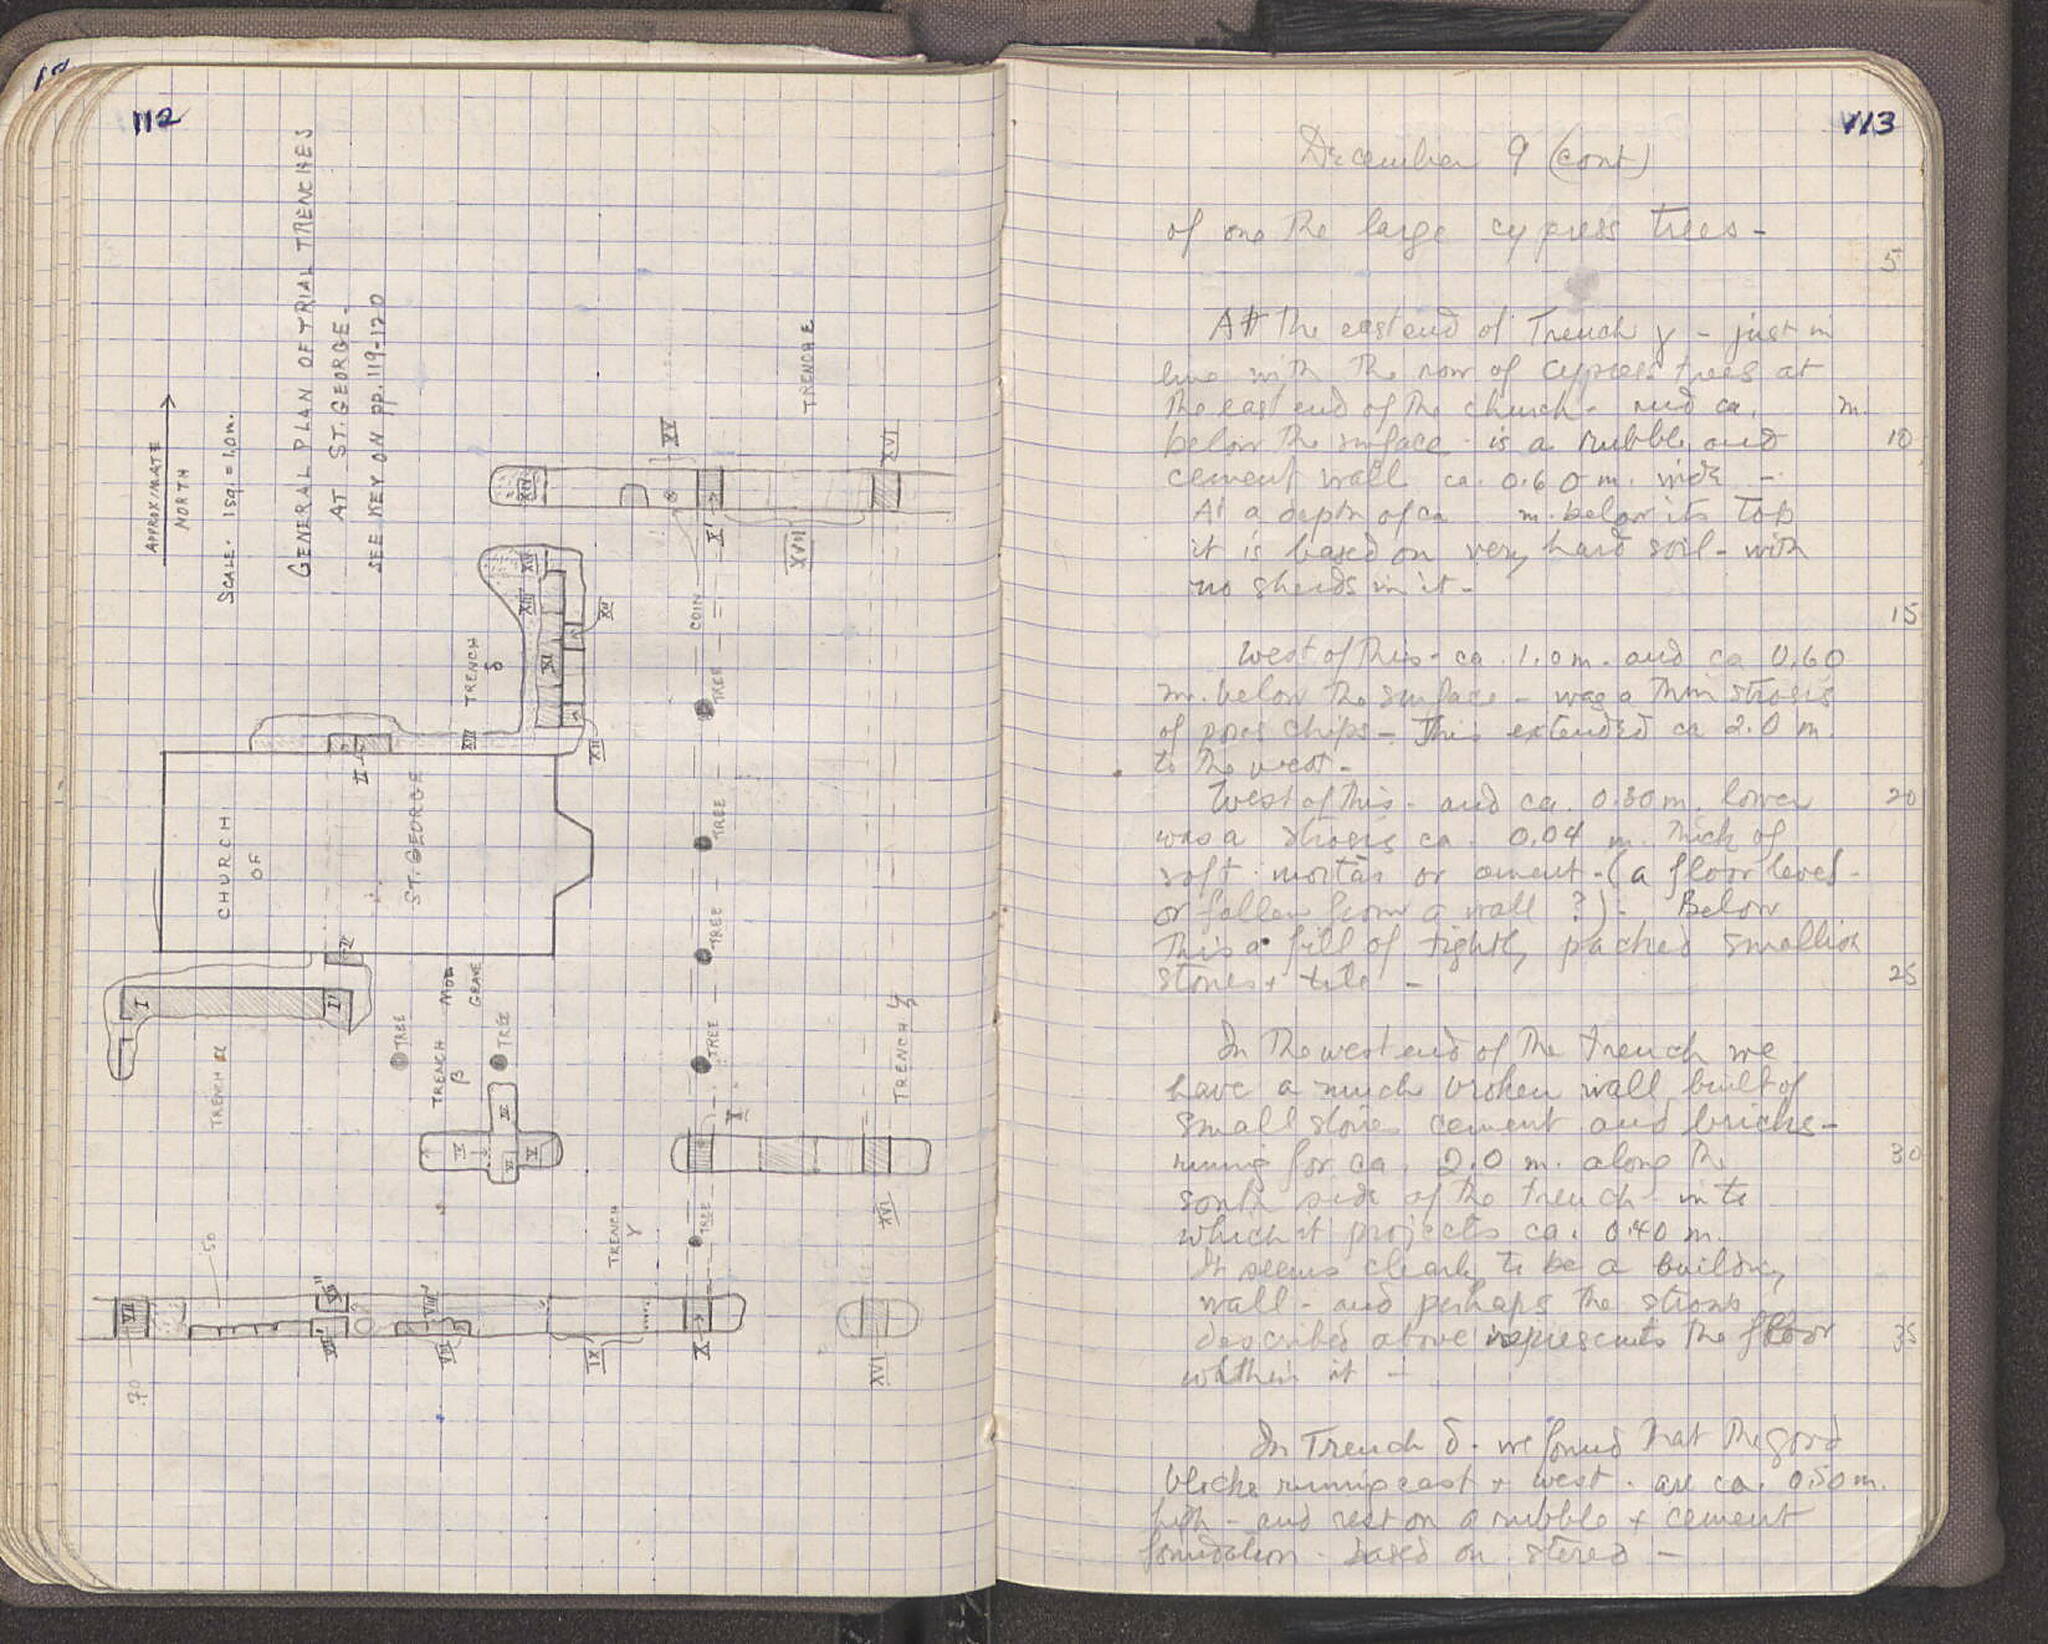 112
GENERAL PLAN OF TRIAL TRENCHES
AT ST. GEORGE -
SEE KEY ON pp. 119-120
APPROXIMATE
NORTH
SCALE. 1 sq. = 1.0 m.
CHURCH
OF
ST. GEORGE
TRENCH α
I
II
II
II
TRENCH
β
MOD
GRAVE
TREE
TREE
TREE
TREE
TREE
TREE
TREE
TRENCH
γ
TRENCH
δ
TRENCH E
TRENCH
COIN
XIII
XI
XII
XII
XIV
XV
X'
XVII
XVI
X
XVI
XVI
IX
VII
50
70
113
December 9 (cont)
of one the large cypress trees -
5
At the east end of Trench γ - just in
line with the row of cypress trees at
the east end of the church - and ca. m.
below the surface - is a rubble and 10
cement wall ca. 0.60 m. wide -
At a depth of ca m. below its top
it is based on very hard soil - with
no sherds in it -
15
West of this - ca. 1.0 m. and ca 0.60
m. below the surface - was a thin strosis
of poros chips - This extended ca 2.0 m.
to the west -
West of this - and ca. 0.30 m. lower 20
was a strosis ca. 0.04 m. thick of
soft mortar or cement - (a floor level -
or fallen from a wall ?) - Below
this a fill of tightly packed smallish
stones + tile - 25
In the west end of the trench we
have a much broken wall built of
small stones cement and bricks -
runing for ca. 2.0 m. along the 30
south side of the trench - into
which it projects ca. 0.40 m.
It seems clearly to be a building
wall - and perhaps the strosis
described above represents the floor 35
within it -
In Trench δ - we found that the good
blocks runing east + west - are ca. 0.50 m.
high - and rest on a rubble + cement
foundation - based on stereo -